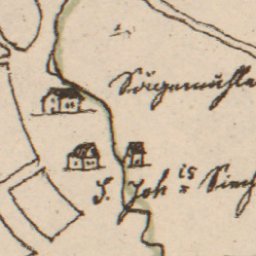 Sägemühle
S. Joh is Siech